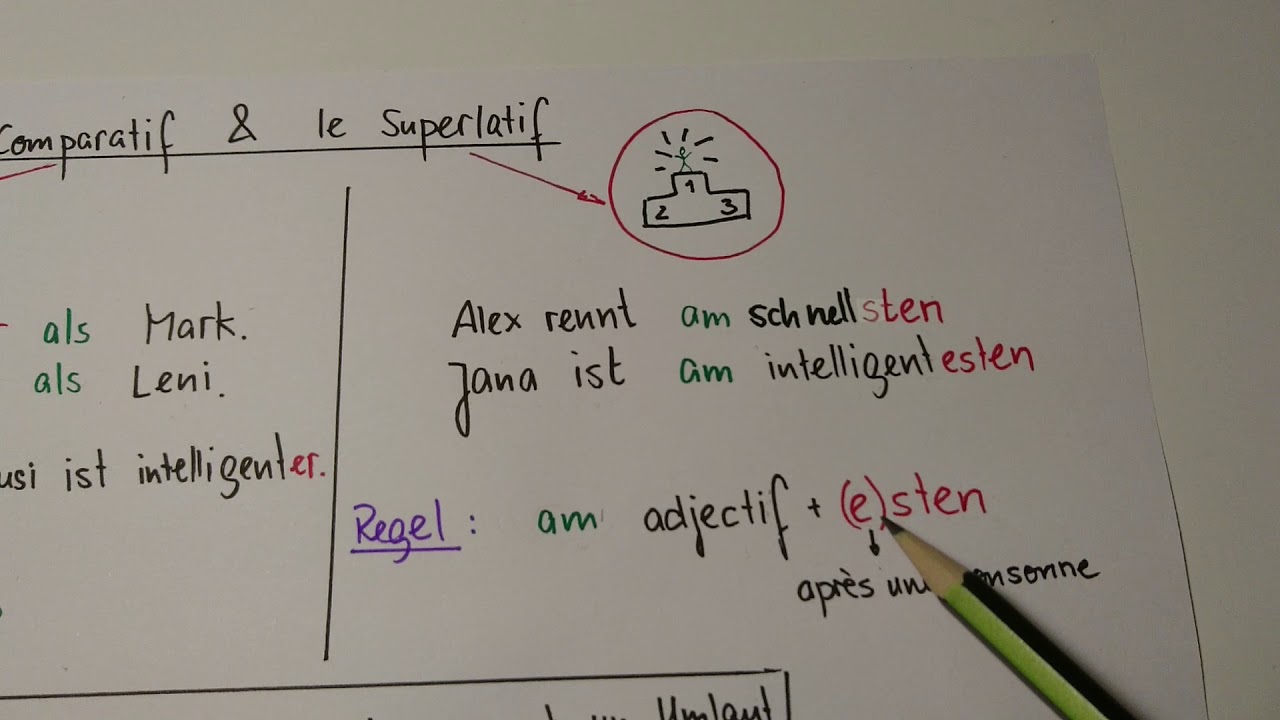 Comparatif & le Superlatif
1
2 3
als Mark.
als Leni.
ist intelligenter.
Alex rennt am schnellsten
Jana ist am intelligentesten
Regel: am adjectif + (e)sten
après
Umlaut